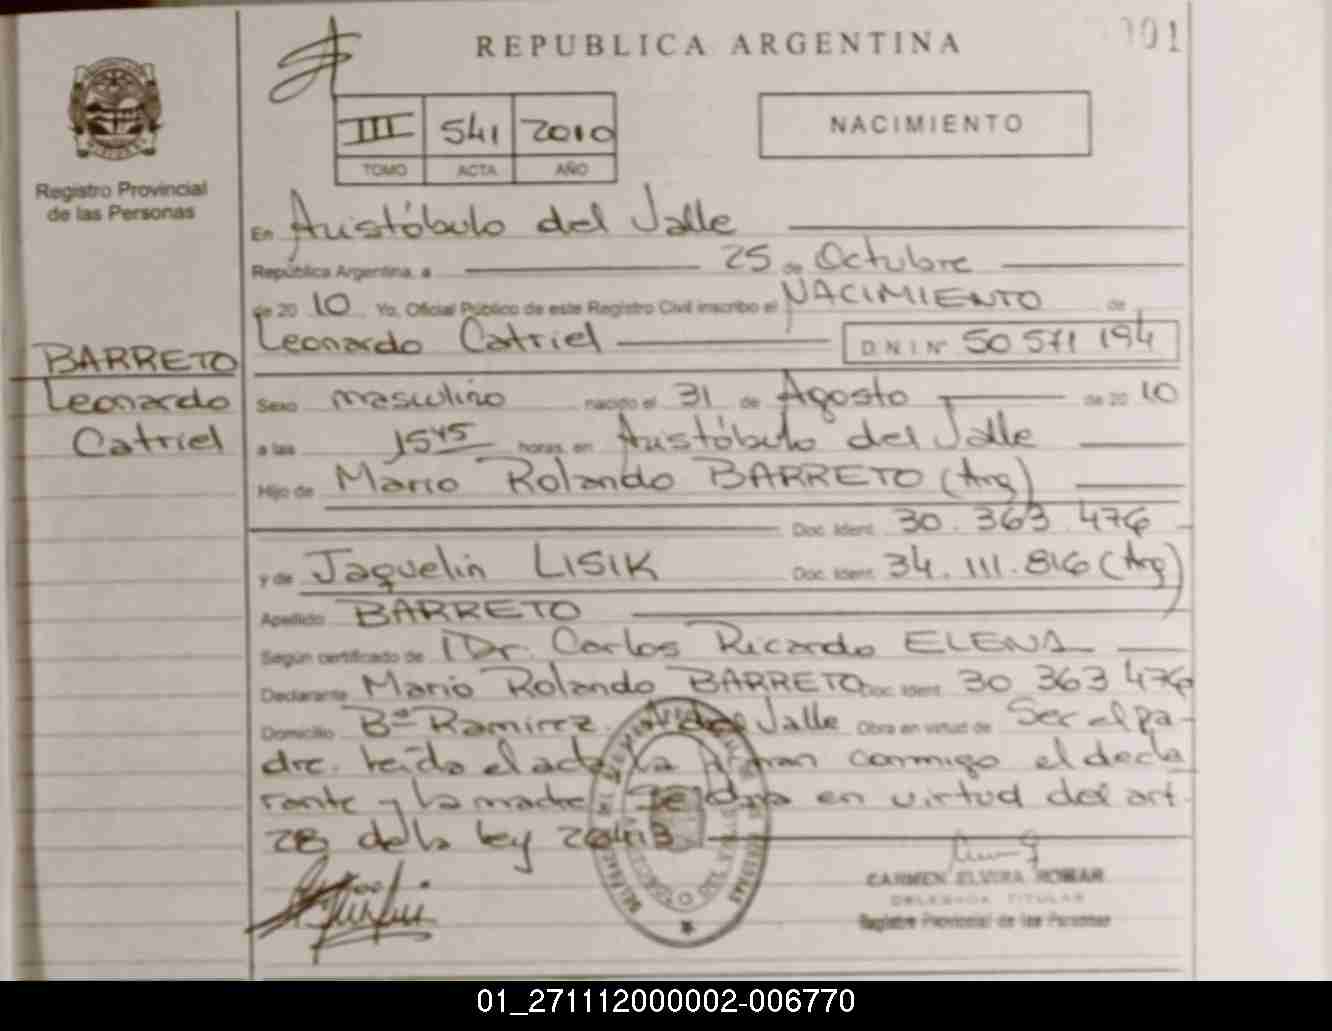 REPUBLICA ARGENTINA
101
III 541 2010
TOMO ACTA AÑO
NACIMIENTO
Registro Provincial
de las Personas
En Aristóbulo del Valle
República Argentina, a 25 de Octubre
de 2010 Yo, Oficial Público de este Registro Civil inscribo el NACIMIENTO de
Leonardo Catriel D N I Nº 50 571 194
BARRETO
Leonardo
Catriel
Sexo masculino nacido el 31 de Agosto de 2010
a las 15 45 horas, en Aristóbulo del Valle
Hijo de Mario Rolando BARRETO (Arg)
Doc. Ident. 30.363.476
y de Jaquelin LISIK Doc. Ident. 34.111.816 (Arg)
Apellido BARRETO
Según certificado de Dr. Carlos Ricardo ELENA
Declarante Mario Rolando BARRETO Doc. Ident. 30 363 476
Domicilio Bº Ramirez. del Valle Obra en virtud de Ser el pa-
dre. leída el acta la firman conmigo el decla
rante y la madre en virtud del art.
28 de la ley 26413
CARMEN ELVIRA
DELEGADA TITULAR
Registro Provincial de las Personas
01_271112000002-006770